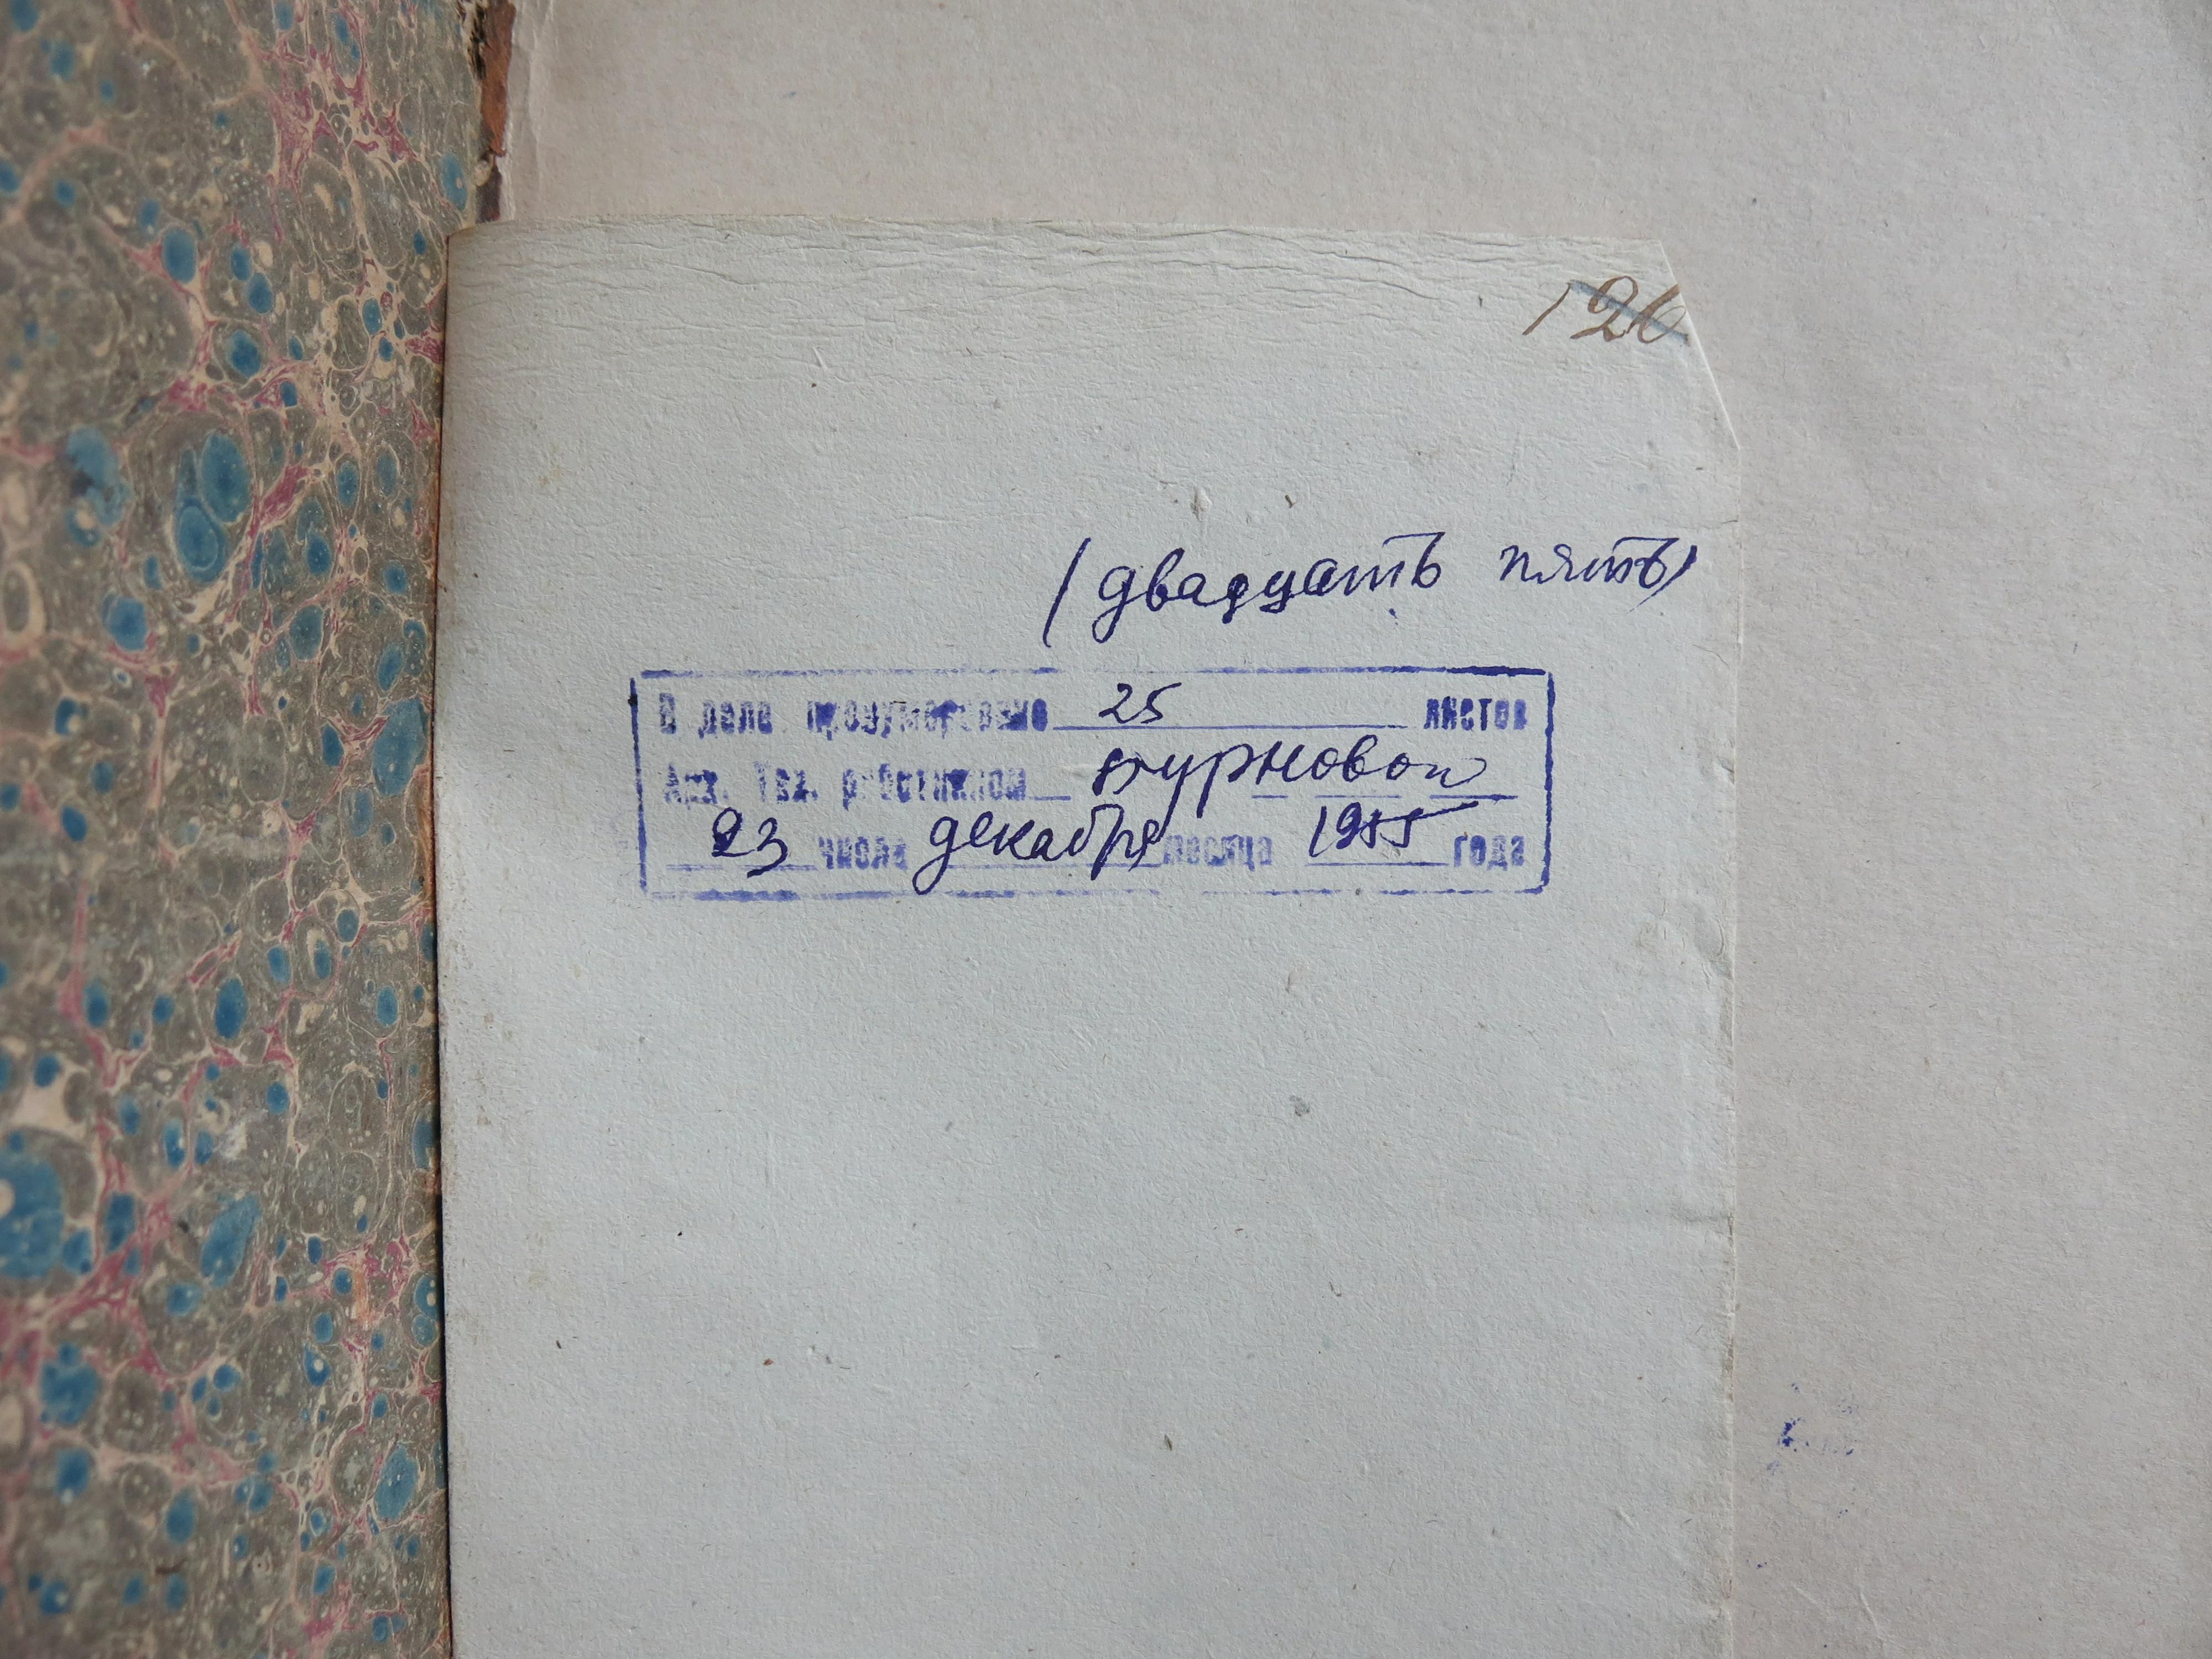 126
(двадцать пять)
В деле пронумеровано 25 листов
Арх. Тех. работником
23 числа декабря месяца 1955 года